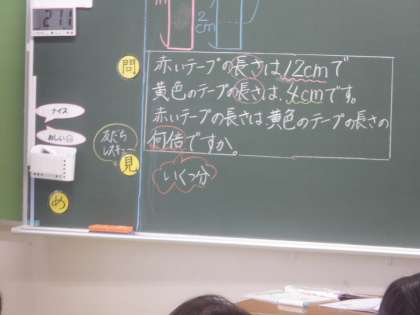 211
2cm
問
赤いテープの長さは12cmで
黄色のテープの長さは、4cmです。
赤いテープの長さは黄色のテープの長さの
何倍ですか。
ナイス
おしい
友だち
レスキュー
見
いくつ分
め